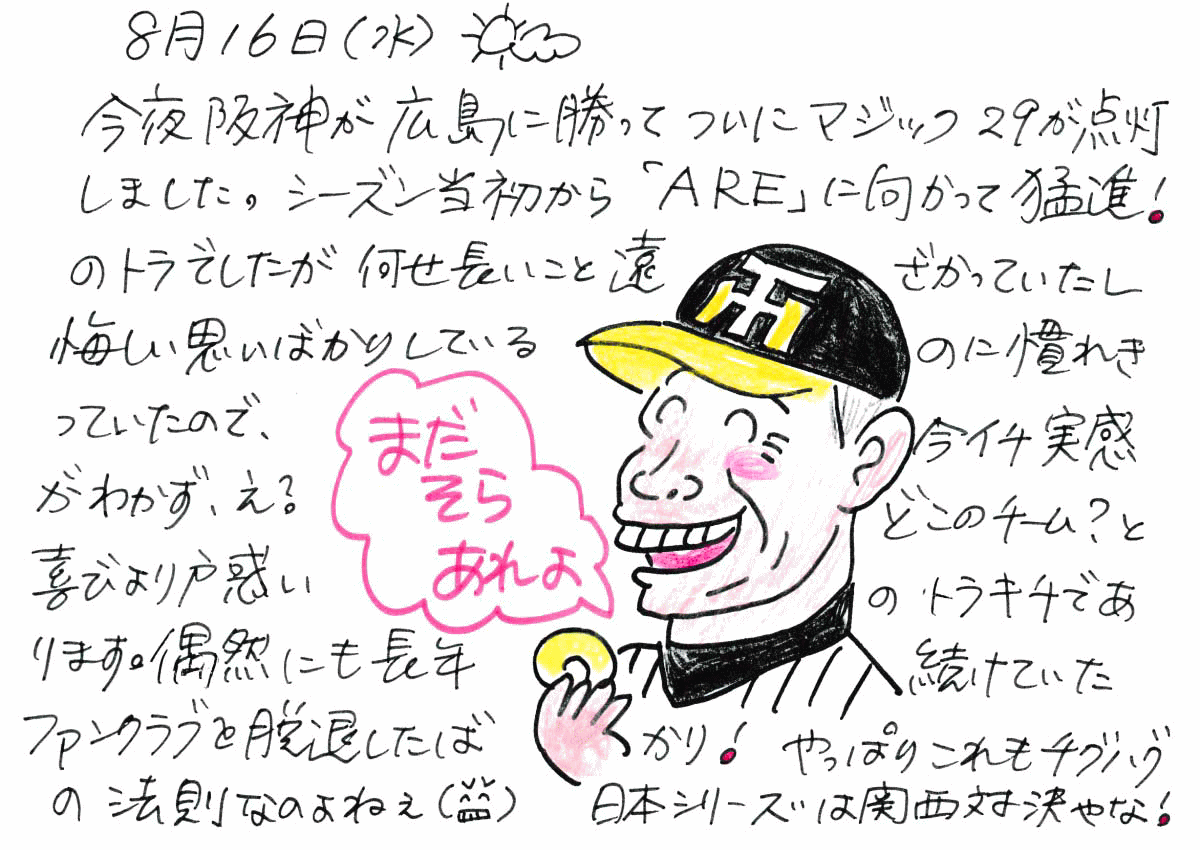 8月16日(水)
今夜阪神が広島に勝ってついにマジック29が点灯
しました。シーズン当初から「ARE」に向かって猛進!
のトラでしたが何せ長いこと遠ざかっていたし
悔しい思いばかりしているのに慣れき
っていたので、今イチ実感
がわかず、え?どこのチーム?と
喜びより戸惑いのトラキチであ
ります。偶然にも長年続けていた
ファンクラブを脱退したばかり!やっぱりこれもチグハグ
の法則なのよねぇ 日本シリーズは関西対決やな!
まだ
そら
あれよ